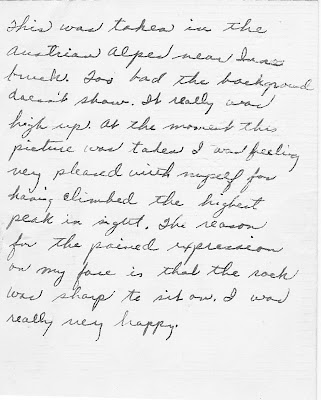 This was taken in the
Austrian Alpes near Inns
bruck. Too bad the background
doesn't show. It really was
high up. At the moment this
picture was taken I was feeling
very pleased with myself for
having climbed the highest
peak in sight. The reason
for the pained expression
on my face is that the rock
was sharp to sit on. I was
really very happy.